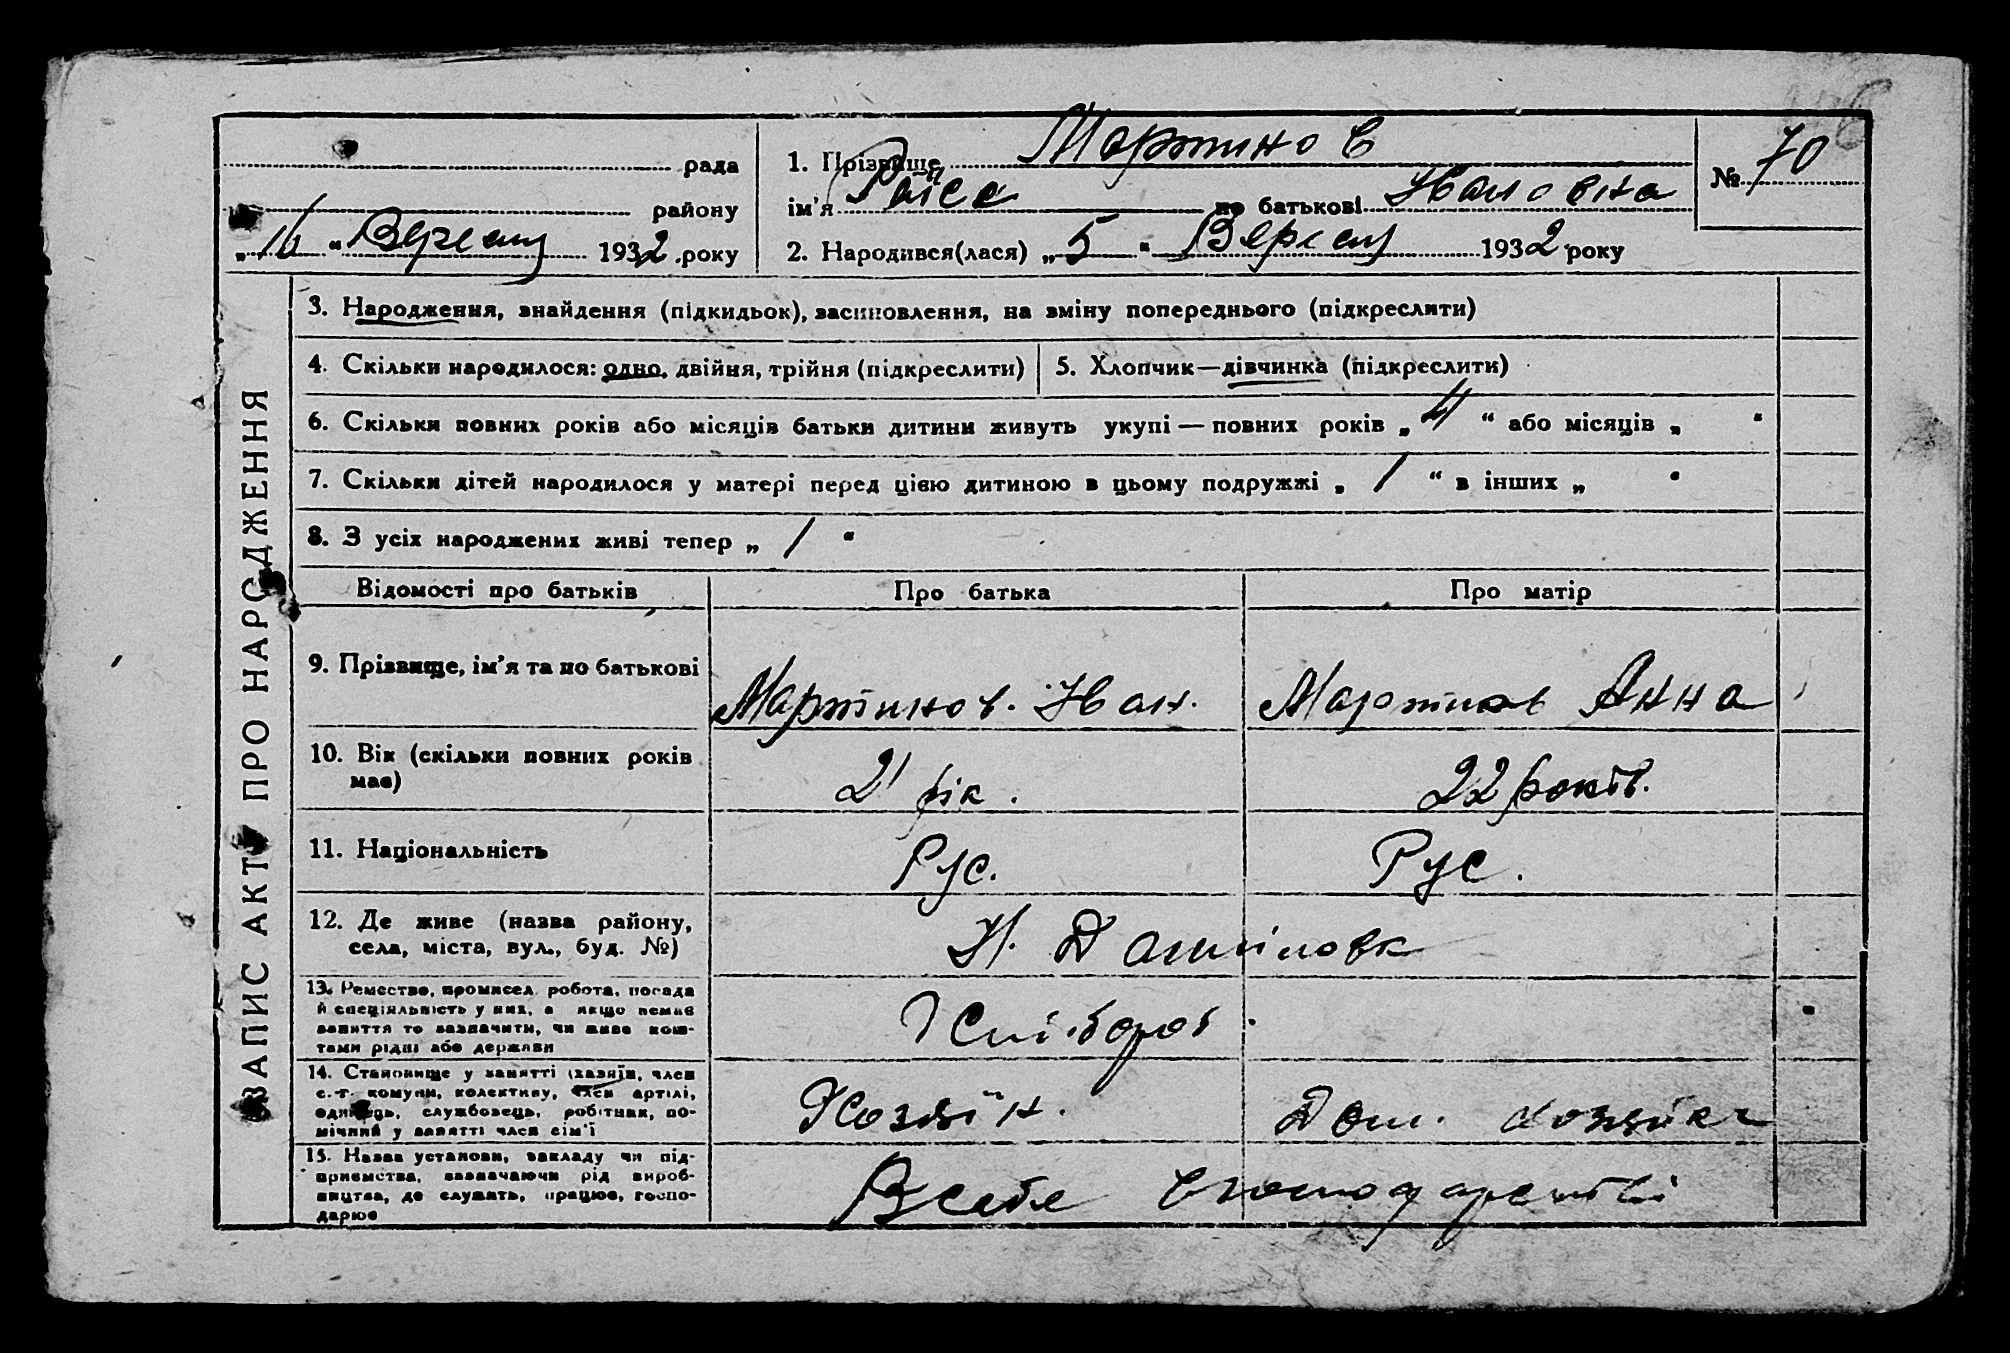 рада
1. Прізвище Мартинов
№ 70
району
ім'я Раїса по батькові Івановна
„16“ Вересня 1932 року
2. Народився(лася) „5“ Вересня 1932 року
ЗАПИС АКТУ ПРО НАРОДЖЕННЯ
3. Народження, знайдення (підкидьок), засиновлення, на зміну попереднього (підкреслити)
4. Скільки народилося: одно, двійня, трійня (підкреслити)
5. Хлопчик—дівчинка (підкреслити)
6. Скільки повних років або місяців батьки дитини живуть укупі — повних років „4“ або місяців „ “
7. Скільки дітей народилося у матері перед цією дитиною в цьому подружжі „1“ в інших „ “
8. З усіх народжених живі тепер „1“
Відомості про батьків
Про батька
Про матір
9. Прізвище, ім'я та по батькові
Мартинов. Іван.
Мартинов Анна
10. Вік (скільки повних років
має)
21 рік.
22 років.
11. Національність
Рус.
Рус.
12. Де живе (назва району,
села, міста, вул., буд. №)
Н. Даниловк
13. Ремество, промисел, робота, посада
й спеціяльність у них, а якщо немає
заняття то зазначити, чи живе кош-
тами рідні або держави
Хлібороб.
14. Становище у занятті (хазяїн, член
с.-г. комуни, колективу, член артілі,
одинець, службовець, робітник, по-
мічний у занятті член сім'ї
Хозяїн.
Дом. хозяйка
15. Назва установи, закладу чи під-
приємства, зазначаючи рід вироб-
ництва, де служать, працює, госпо-
дарює
В себе в господарстві